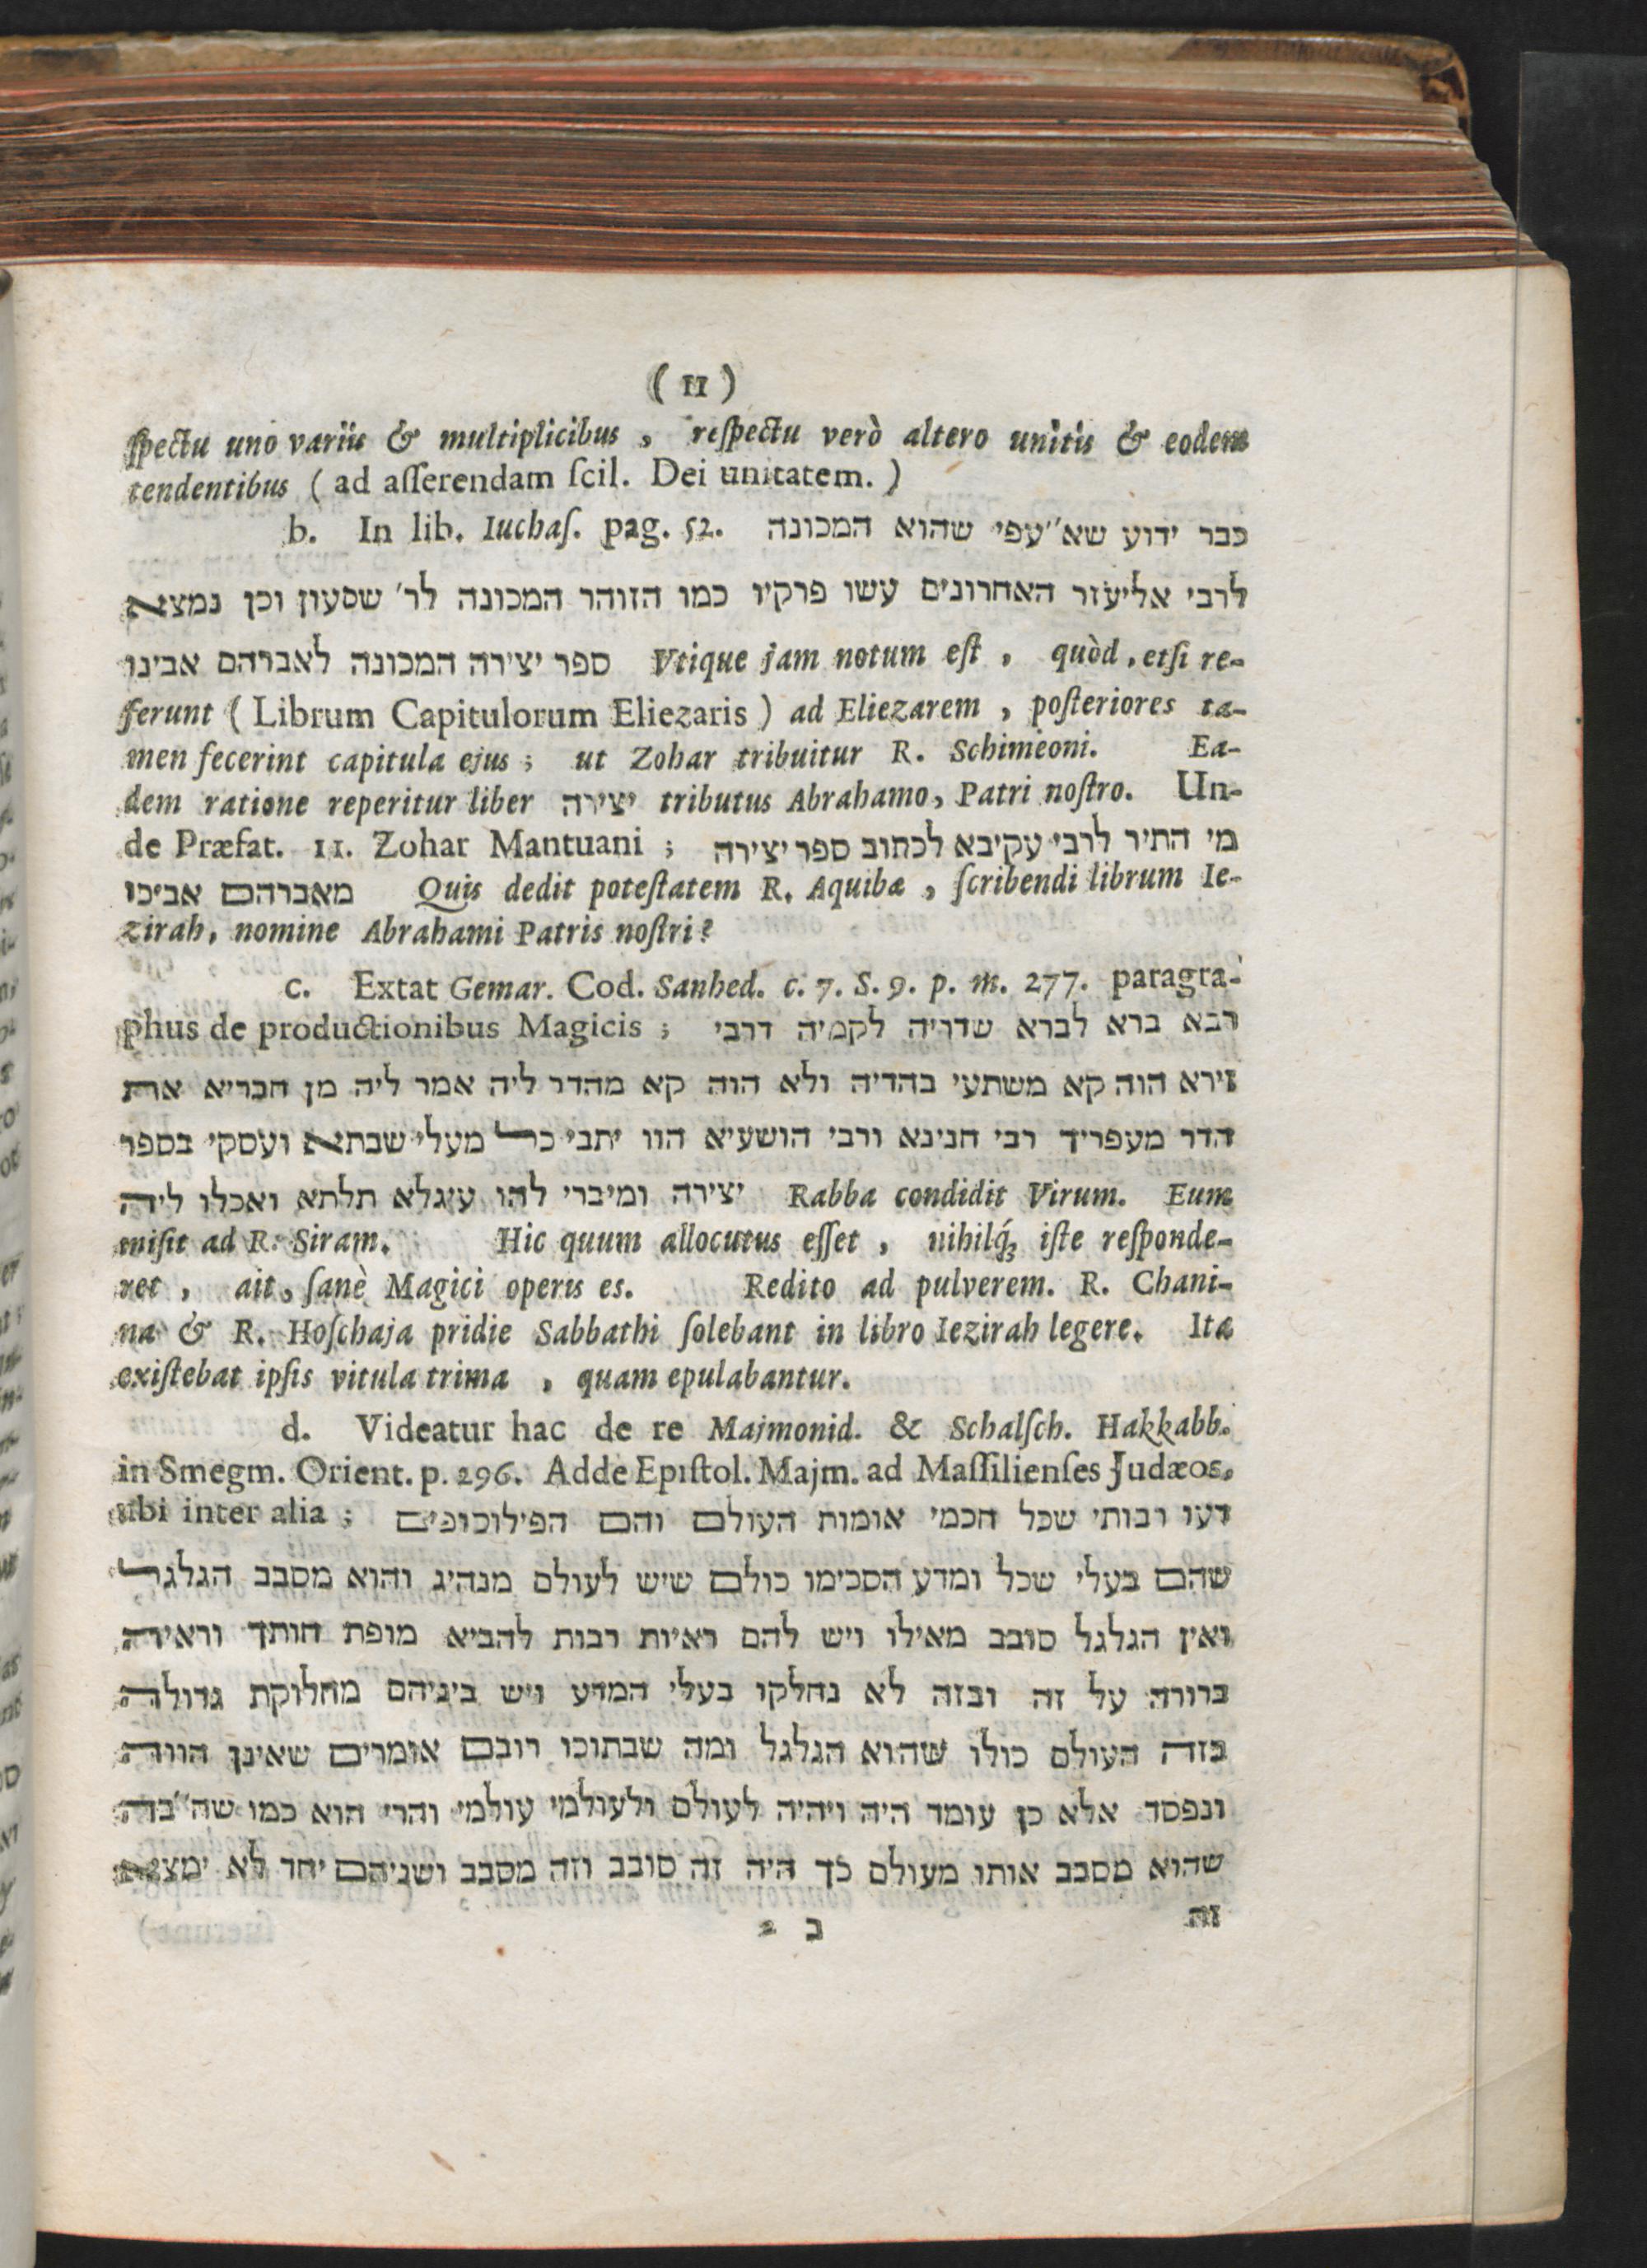 ( 11 )
ſpectu uno variis & multiplicibus , reſpectu verò altero unitis & eodem
tendentibus ( ad aſſerendam ſcil. Dei unitatem. )
b. In lib. Iuchaſ. pag. 52. כבר ידוע שא״עפי שהוא המכונה
לרבי אליעזר האחרונים עשו פרקיו כמו הזוהר המכונה לר׳ שסעון וכן נמצא
ספר יצירה המכונה לאברהם אבינו Vtique jam notum eſt , quòd , etſi re-
ferunt ( Librum Capitulorum Eliezaris ) ad Eliezarem , poſteriores ta-
men fecerint capitula ejus ; ut Zohar tribuitur R. Schimeoni. Ea-
dem ratione reperitur liber יצירה tributus Abrahamo, Patri noſtro. Un-
de Præfat. 11. Zohar Mantuani ; מי התיר לרבי עקיבא לכתוב ספר יצירה
מאברהם אביכו Quis dedit poteſtatem R. Aquibæ , ſcribendi librum Ie-
zirah, nomine Abrahami Patris noſtri?
c. Extat Gemar. Cod. Sanhed. c. 7. S. 9. p. m. 277. paragra-
phus de productionibus Magicis ; רבא ברא לברא שדריה לקמיה דרבי
זירא הוה קא משתעי בהדיה ולא הוה קא מהדר ליה אמר ליה מן חבריא את
הדר מעפריך רבי חנינא ורבי הושעיא הוו יתבי כל מעלי שבתא ועסקי בספר
יצירה ומיברי להו עיגלא תלתא ואכלו ליה Rabba condidit Virum. Eum
miſit ad R. Siram. Hic quum allocutus eſſet , nihilq́; iſte reſponde-
ret , ait, ſanè Magici operis es. Redito ad pulverem. R. Chani-
na & R. Hoſchaja pridie Sabbathi ſolebant in libro Iezirah legere. Ita
exiſtebat ipſis vitula trima , quam epulabantur.
d. Videatur hac de re Majmonid. & Schalſch. Hakkabb.
in Smegm. Orient. p. 296. Adde Epiſtol. Majm. ad Maſſilienſes Judæos,
ubi inter alia ; דעו רבותי שכל חכמי אומות העולם והם הפילוכופים
שהם בעלי שכל ומדע הסכימו כולם שיש לעולם מנהיג והוא מסבב הגלגל
ואין הגלגל סובב מאילו ויש להם ראיות רבות להביא מופת חותך וראיה
ברורה על זה ובזה לא נחלקו בעלי המדע ויש ביניהם מחלוקת גדולה
בזה העולם כולו שהוא הגלגל ומה שבתוכו רובם אומרים שאינן הווה
ונפסד אלא כן עומד היה ויהיה לעולם ולעולמי עולמי והרי הוא כמו שה״בה
שהוא מסבב אותו מעולם כך היה זה סובב וזה מסבב ושניהם יחד לא ימצא
ב 2 זה